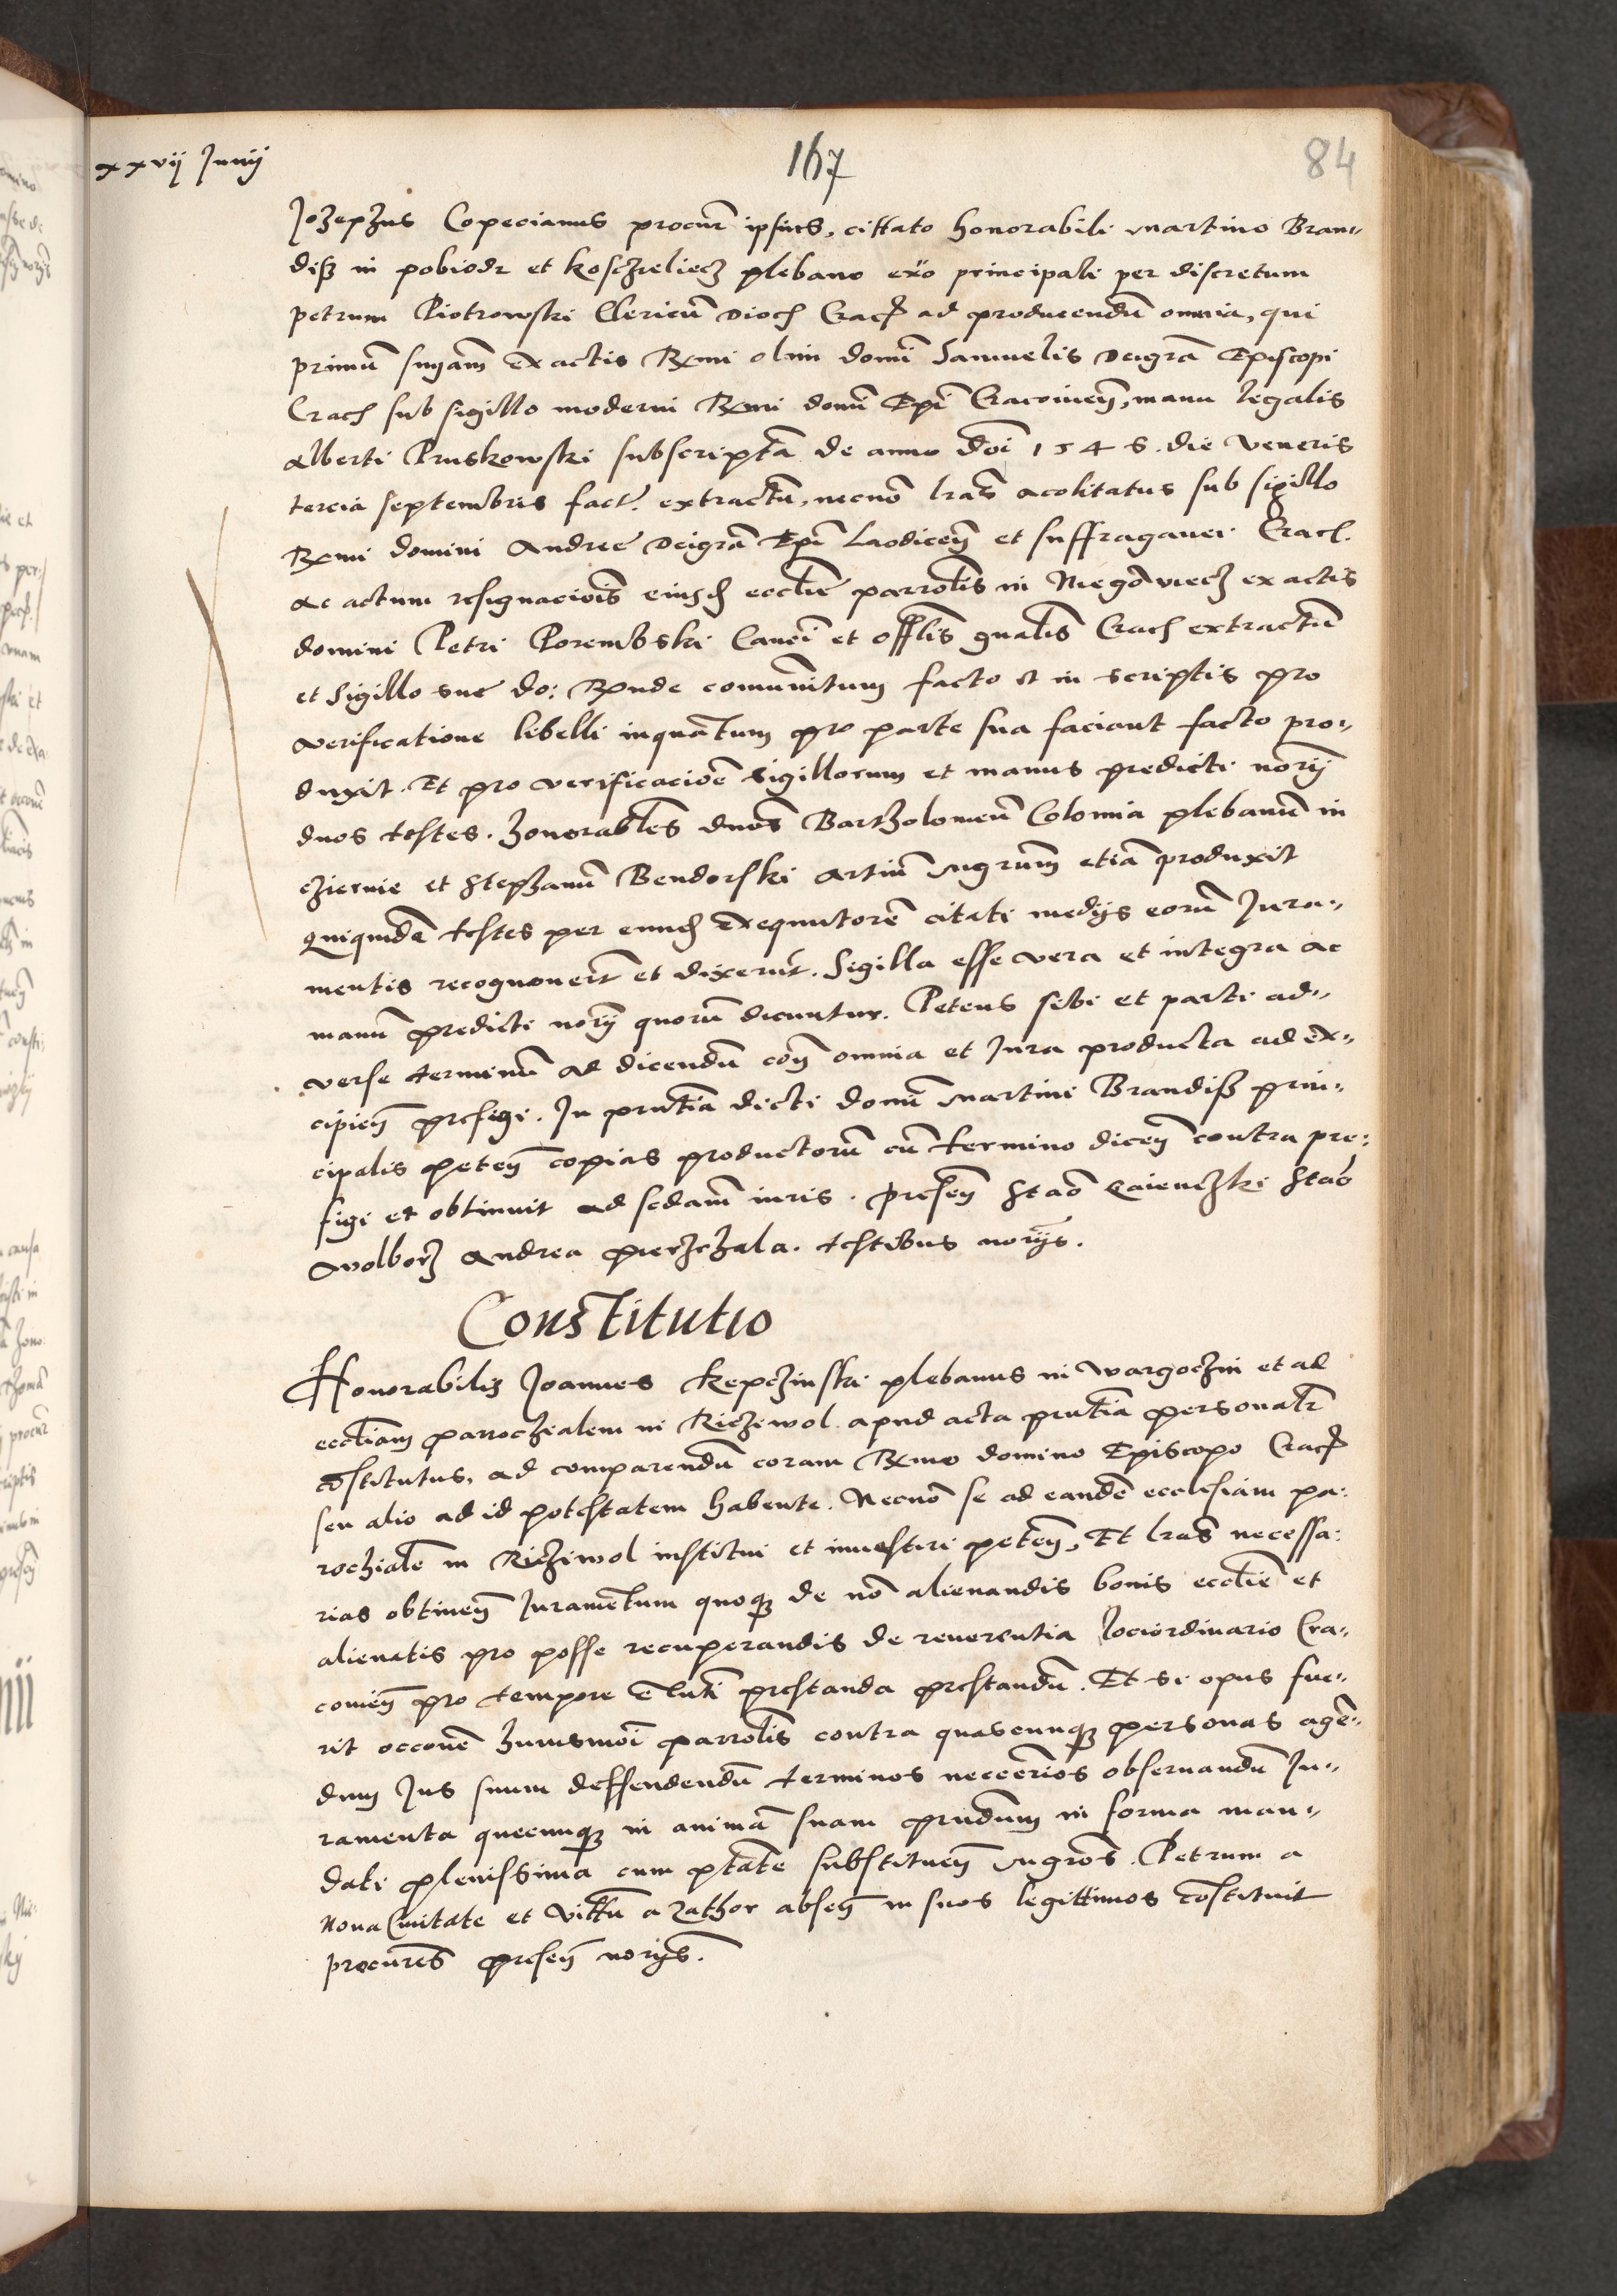 xxvij Junij
167
84
Jozephus Copecianus procur ipsius, cittato honorabili Martino Bran„
diß in pobiodr et koschieliecz plebano exo principali per discretum
petrum Piotrowski Clericum Dioch Crach ad producendum omnia, qui
primum Rmi olim domi Samuelis Deigra Episcopi
Crach sub sigillo moderni Rmi domi Epi Cracovien, manu legalis
Alberti Pruskowski subscripta de anno doi 1548. die Veneris
tercia septembris fact. extractum, necno lras acolitatus sub sigillo
Rmi domini Andree Deigra Epi Laodicen et suffraganei Crach.
ac actum resignaciois eiusd ecclie parrolis in ex actis
domini Petri Porembski Canci et offlis gnalis Crach extractum
et sigillo sue do: Rnde comunitum facto et in scriptis pro
verificatione libelli inquantum pro parte sua faciant facto pro„
duxit. Et pro verificacioe sigillorum et manus predicti norij
duos testes. honorables dnos Bartholomeu Colonia plebanu in
czirnie et Stephanu Bendorski artiu mgrum etia produxit
quiquide testes per eund exequutore citati medijs eoru Jura„
mentis recognovert et dixerut. Sigilla esse vera et integra ac
manu predicti norij quoru dicuntur. Petens sibi et parti ad„
verse terminu ad dicendu con omnia et Jura producta ad ex„
cipien prefigi. In prntia dicti domi Martini Brandiß prin„
cipalis peten copias productoru cu termino dicen contra pre:
figi et obtinuit ad sedam iuris. presen Stao Staō
Wolborz Andrea pierzchala. testibus norijs.
Constitutio
Honorabilis Joannes kepczinski plebanus in Wargoczin et ad
eccliam parrochialem in Ricziwol apud acta prntia personalr
costitutus, ad comparendu coram Rmo domino Episcopo Crach
seu alio ad id potestatem habente. Necno se ad eande ecclesiam pa:
rochiale in Ricziwol institui et investiri peten, Et lras necessa:
rias obtinen Juramentum quoq de no alienandis bonis ecclie et
alienatis pro posse recuperandis de reverentia lociordinario Cra„
covien pro tempore prestanda prestandu. Et si opus fue„
rit occone huiusmoi parrolis contra quascunq personas age„
dum Jus suum deffendendu terminos neccerios observandu Ju„
ramenta quecunq in anima suam prndum in forma man„
dati plenissima cum ptate substituen mgros. Petrum a
Nova Civitate et Vittu a Zathor absen in suos legittimos costituit
procures presen norijs.